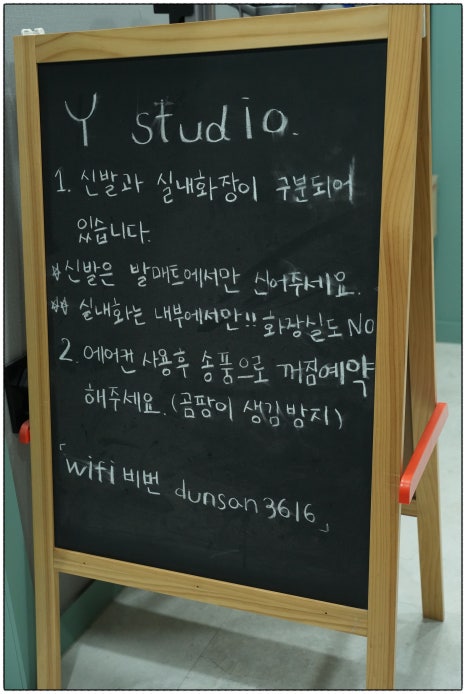 Y studio.
1. 신발과 실내화장이 구분되어
있습니다.
* 신발은 발매트에서만 신어주세요.
** 실내화는 내부에서만!! 화장실도 NO
2. 에어컨 사용후 송풍으로 꺼짐예약
해주세요. (곰팡이 생김방지)
「wifi 비번 dunsan3616」